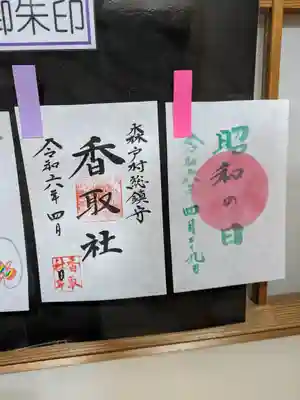 御朱印
森戸村総鎮守
香取社
令和六年四月
昭和の日
四月二十九日